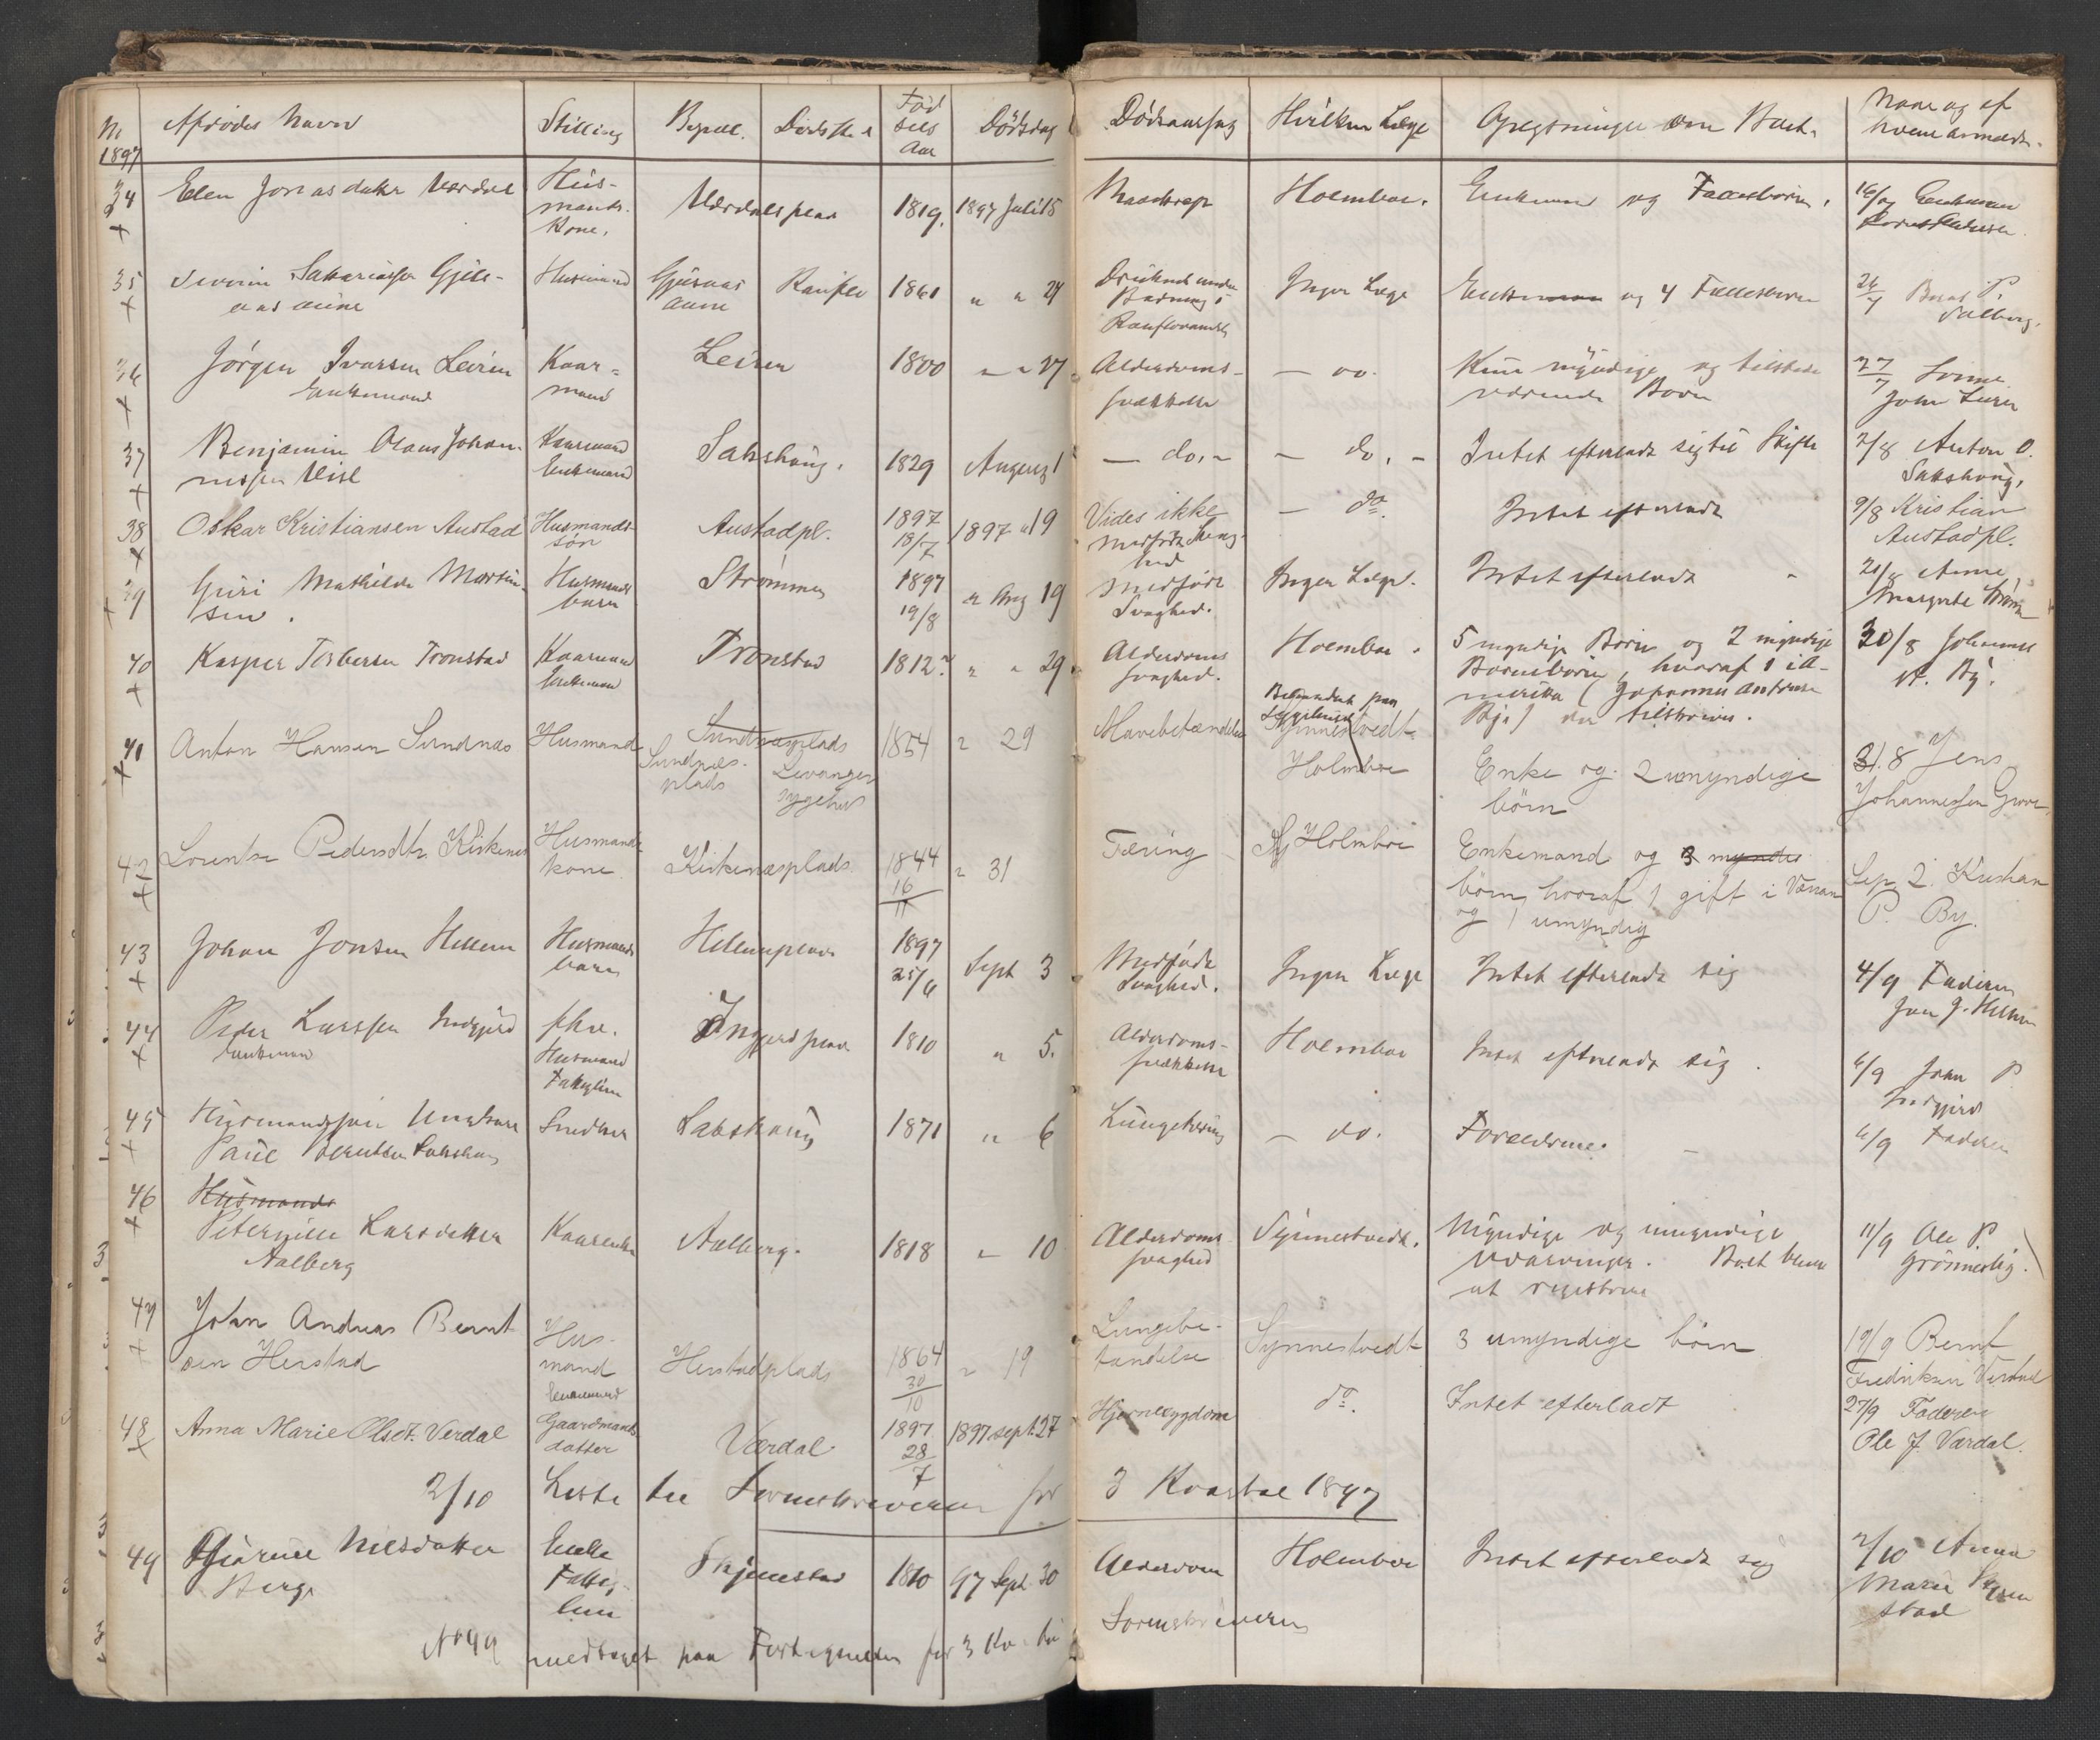 Nr Afdødes Navn Stilling Bopæl. Dødsste Fød sels Aar Dødsdag Dødsaarsag Hvilken Læge Oplysninger om Boet. Naar og af hvem anmeldt.
1897
34 Elen Jonasdatter Værdal Husmands Kone. Værdalsplads 1819. 1897 Juli 15 Holmboe. Enkemand og Fællesbørn. 16/7 Enkemand
35 Severin Sakariassen Gjile-
aas aune Husmand aune Ranflev 1861 " " 24 Druknet under Badning i Ranflovandet Ingen Læge Enkemand og 4 Fællesbørn 26/7 Bernt P. Salberg.
36 Jørgen Ivarsen Leiren
Enkemand Kaarmand Leiren 1800 " " 27 Alderdoms- svækkelse — do. Kun myndige og tilstede værende Børn 27/7 Sønne John Leiren
37 Benjamin Olaus Johan-
nessen Kaarmand Enkemand Sakshaug. 1829 August 1 — do. — — do. — Intet efterladt sig til Skifte 2/8 Anton O. Sakshaug.
38 Oskar Kristiansen Austad Husmands- søn Austadpl. 1897 18/7 1897 " 19 Vides ikke — do. Intet efterladt 9/8 Kristian Austadpl.
39 Guri Mathilde Martin-
sen. Husmands barn Strømmen 1897 19/8 " Aug 19 Medfødt Svaghed. Ingen Læge. Intet efterladt 21/8 Anne Margrete Strøm
40 Kasper Torbersen Tronstad Kaarmand Enkemand Tronstad 1812. " " 29. Alderdoms svaghed. Holmboe. 5 myndige Børn og 2 myndige
Børnebørn, hvoraf 1 i A-
merika (Johannes Antonsen
By) er tilskreven. 30/8 Johannes A. By.
41 Anton Hansen Sundnæs Husmand Sundnæsplads Sundnæs- plads Levanger sygehus 1854 " 29 Mavebetændelse Behandlet paa Sygehuset Synnestvedt Holmboe Enke og 2 umyndige
børn 31.8 Jens Johannessen
42 Lorentse Pedersdtr. Kirkenes Husmands- kone. Kirkenæsplads. 1844 16/11 " 31 Tæring Holmboe Enkemand og 3 myndes
børn, hvoraf 1 gift i Værran
og 1 umyndig Sep. 2. Kristian P. By.
43 Johan Jonsen Hellem Husmands barn Hellemplads 1897 25/6 Sept 3 Medfødt Svaghed. Ingen Læge Intet efterladt sig 4/9 Faderen Jon J. Hellem
44 Peder Larssen Indgjerd
Enkemand fhv. Husmand Fattiglem 1810 " 5. Alderdoms- svækkelse Holmboe Intet efterladt sig. 6/9 John P. Indgjerd
45 Husmandssøn Ungkarl
Paul Sakshaug Snedker Sakshaug 1871 " 6 Lungetæring — do. Forældrene. 6/9 Faderen
46 Husmands
Peternille Larsdatter
Aalberg Kaarenke Aalberg. 1818 " 10 Alderdoms svaghed Synnestvedt. Myndige og umyndige
udarvinger. Boet blever
at registrere 11/9 Ole P. Grønneslig.
47 Johan Andreas Bernt
sen Heistad Hus- mand Enkemand Heistadplads 1864 30/10 " 19 Lungebe- tændelse Synnestvedt 3 umyndige børn 19/9 Bernt Fredriksen
48 Anna Marie Olsdt. Verdal Gaardmands datter Værdal 1897 28/7 1897 sept. 27 Hjernesygdom do. Intet efterladt 27/9 Faderen Ole J. Værdal.
2/10 Liste til Sorenskriveren for 3 Kvartal 1897
49 Nilsdatter
Berg Enke Fattig- lem 1810 97 Sept. 30 Alderdom Holmboe Intet efterladt sig 2/10 Anna Marie
No 49 medtaget paa Fortegnelsen for 3 Kv. til Sorenskriveren